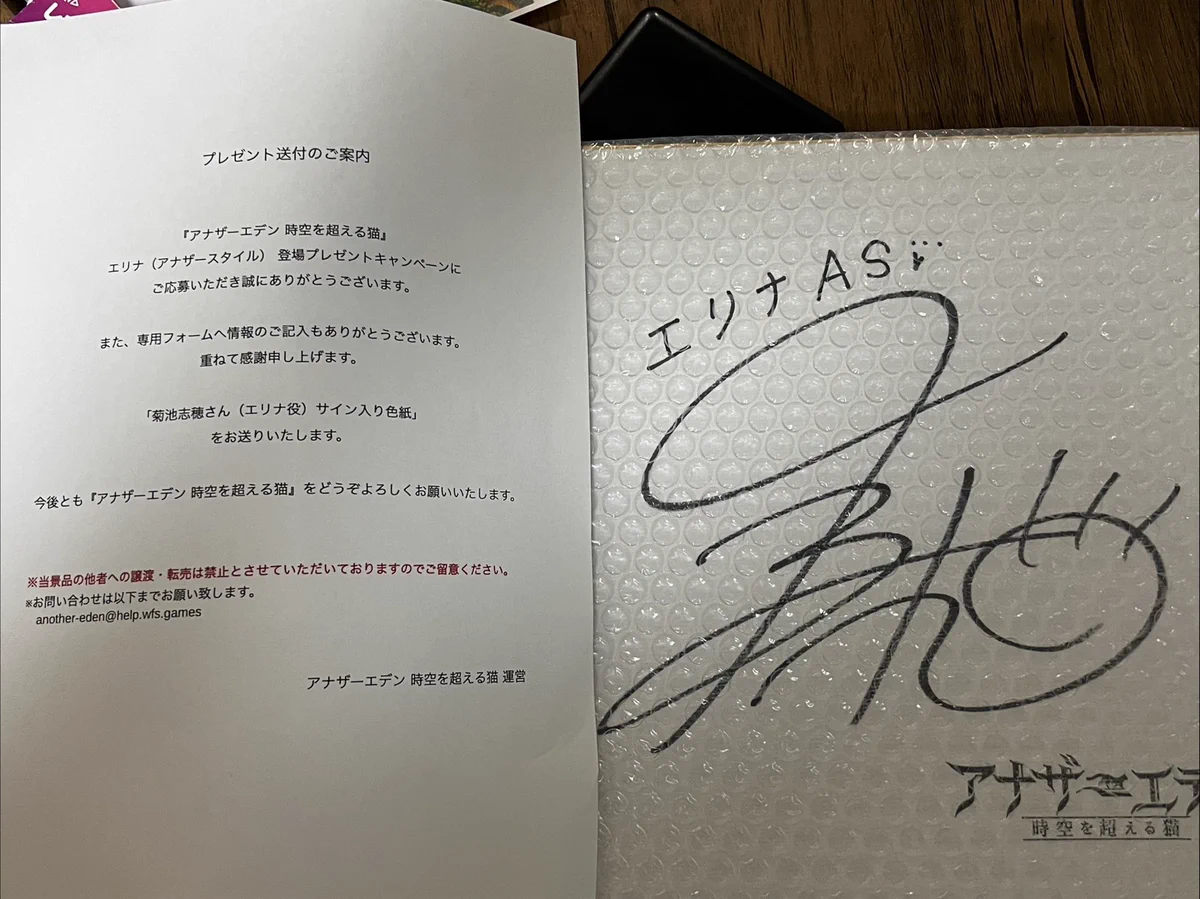 プレゼント送付のご案内
『アナザーエデン 時空を超える猫』
エリナ（アナザースタイル） 登場プレゼントキャンペーンに
ご応募いただき誠にありがとうございます。
また、専用フォームへ情報のご記入もありがとうございます。
重ねて感謝申し上げます。
「菊池志穂さん（エリナ役）サイン入り色紙」
をお送りいたします。
今後とも『アナザーエデン 時空を超える猫』をどうぞよろしくお願いいたします。
※当景品の他者への譲渡・転売は禁止とさせていただいておりますのでご留意ください。
※お問い合わせは以下までお願い致します。
another-eden@help.wfs.games
アナザーエデン 時空を超える猫 運営
エリナ AS
アナザーエデ
時空を超える猫